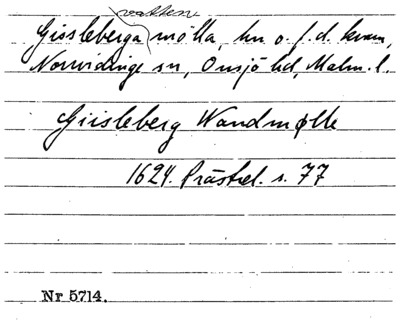 vatten
Gissleberga mölla, hn o. f.d. kvarn,
Norrvidinge sn, Onsjö hd, Malm. l.
Giisleberg Wandmølle
1624. Prästrel. s. 77
Nr 5714.